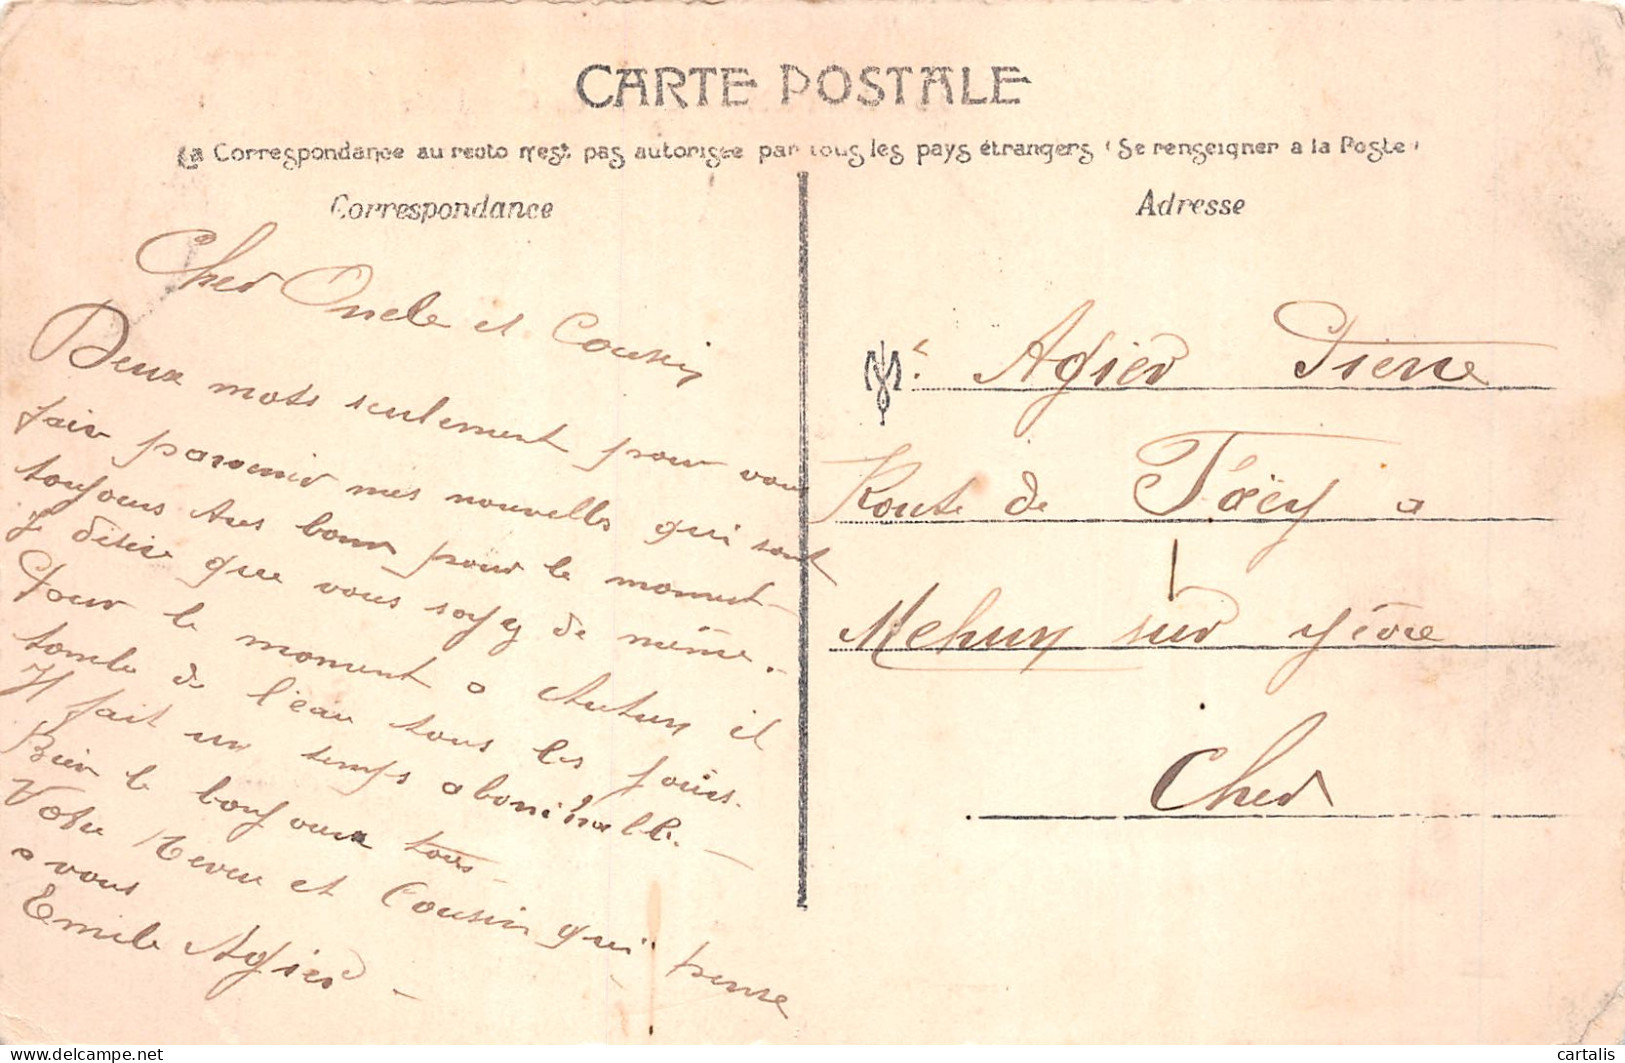 CARTE POSTALE
La Correspondance au recto n'est pas autorisée par tous les pays étrangers (Se renseigner a la Poste)
Correspondance
Adresse
Cher Oncle et Cousin
Deux mots seulement pour vous
fair parvenir mes nouvelles qui sont
toujours tres bonn pour le moment
Je désire que vous soyez de même.
Pour le moment a Autun il
tombe de l'eau tous les jours.
Il fait un temps abominable.
Bien le bonjour a tous
Votre Neveu et Cousin qui pense
a vous
Emile Agier
M. Agier Pierre
Route de Foëcy a
Mehun sur yèvre
Cher
cartalis
delcampe.net